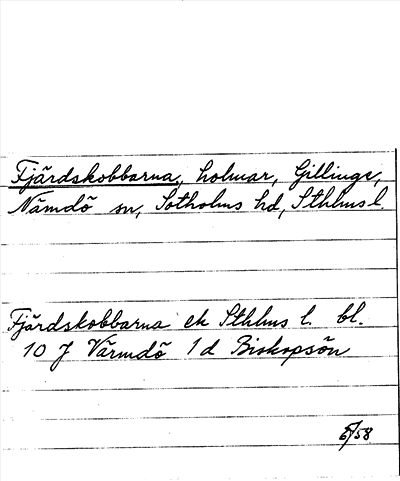 Fjärdskobbarna, holmar, Gillinge,
Nämdö sn, Sotholms hd, Sthlms l.
Fjärdskobbarna ek Sthlms l. bl.
10 J Värmdö 1 d Biskopsön
6/58